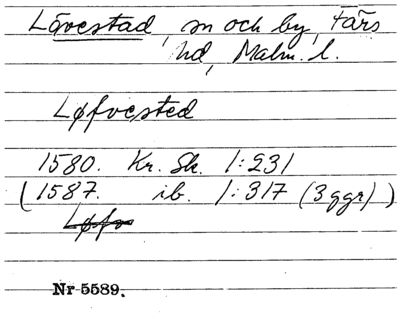 Lövestad, sn och by, Färs
hd, Malm. l.
Løfvested
1580. Kr. Sk. 1:231
(1587. ib. 1:317 (3 ggr))
Løfv
Nr 5589.